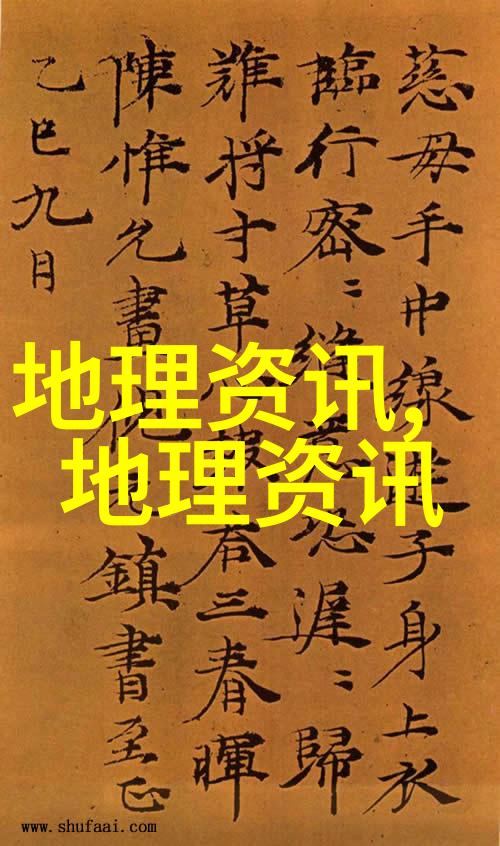 慈母手中線遊子身上衣
臨行密〻縫意恐遲〻歸
難将寸草心報荅三春暉
陳惟允畫倪元鎮書至正
乙巳九月
地理资讯,
地理资讯
www.shufaai.com